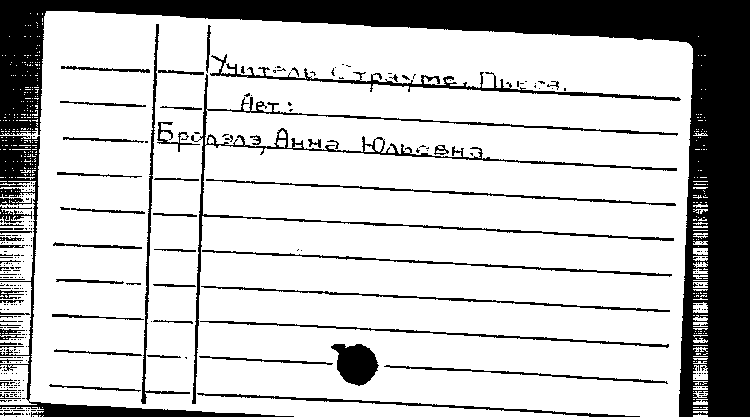 Учитель Страуме. Пьеса.
Авт.:
Бродэлэ, Анна Юльевна.